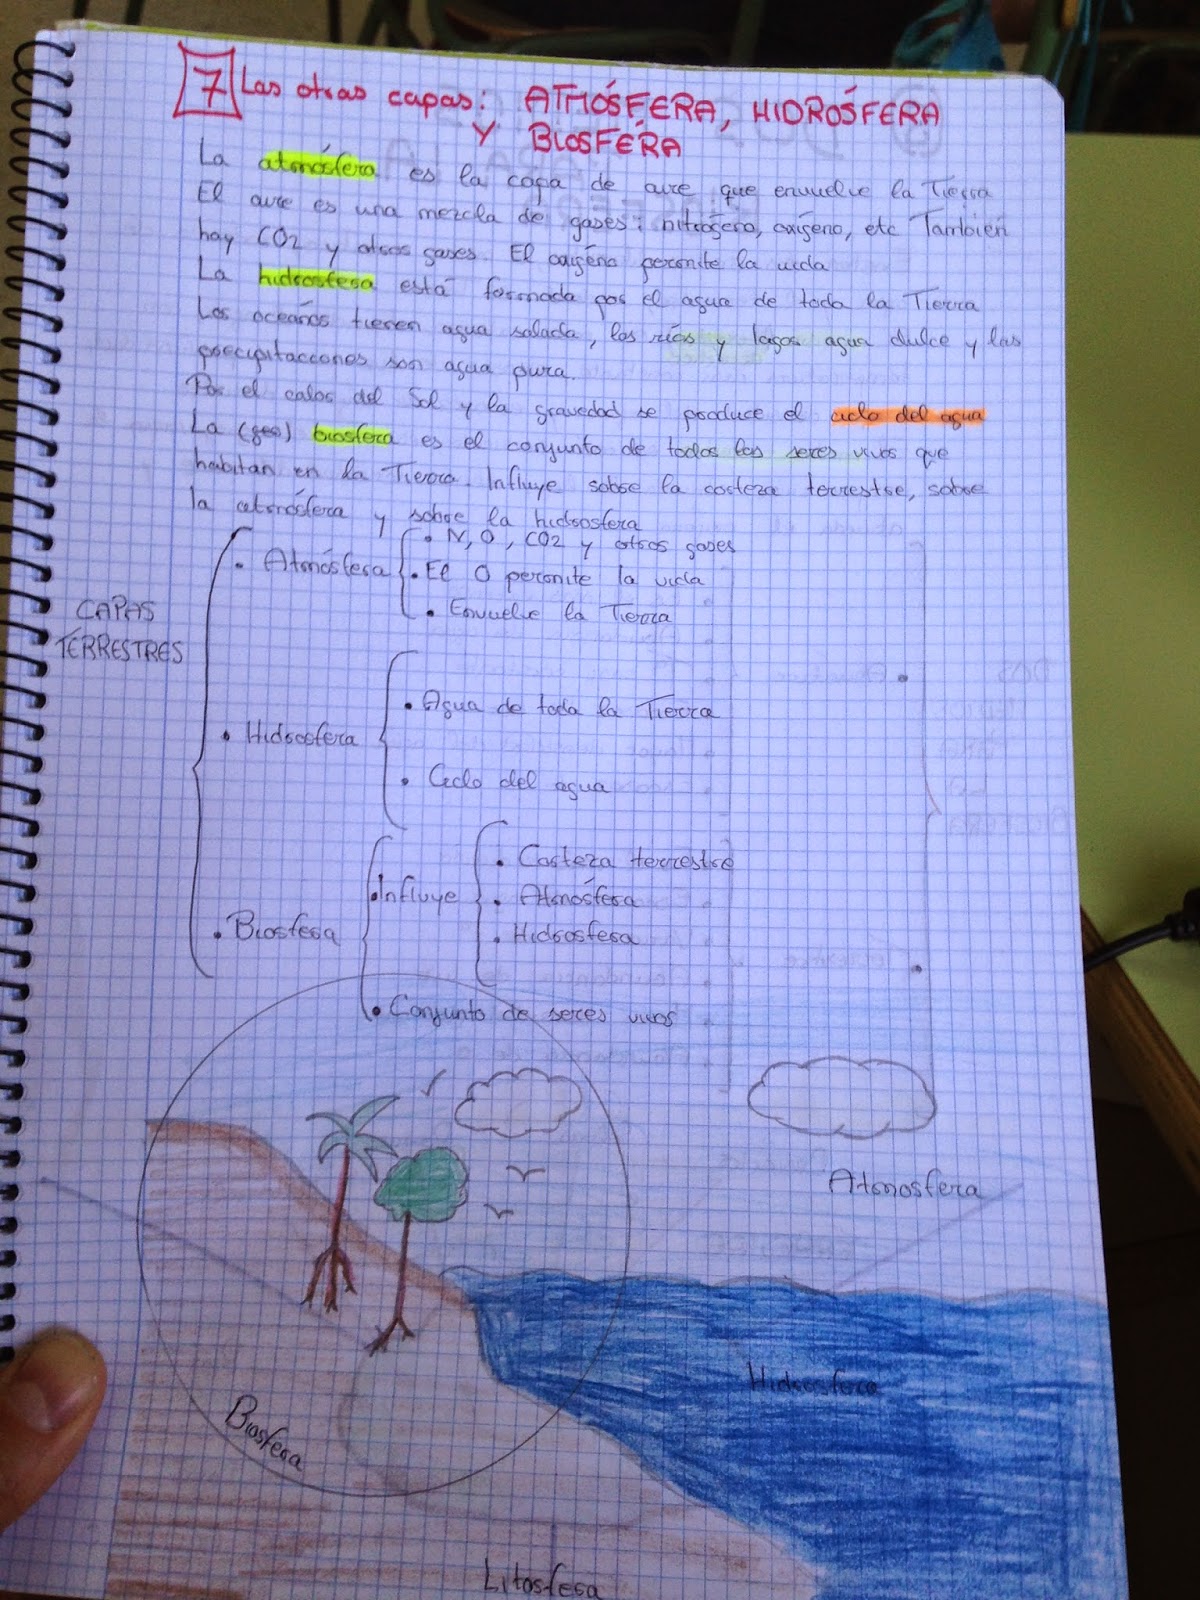 7 Las otras capas: ATMÓSFERA, HIDRÓSFERA
Y BIOSFÉRA
La atmósfera es la capa de aire que envuelve la Tierra
El aire es una mezcla de gases: nitrógeno, oxígeno, etc También
hay CO2 y otros gases. El oxígéno permite la vida
La hidrosfera está formada por el agua de toda la Tierra
Los oceános tienen agua salada, los ríos y lagos agua dulce y las
precipitacciones son agua pura.
Por el calor del Sol y la gravedad se produce el ciclo del agua
La (geo) biosfera es el conjunto de todos los seres vivos que
habitan en la Tierra. Influye sobre la corteza terrestre, sobre
la atmósfera y sobre la hidrosfera
CAPAS
TERRESTRES
• Atmósfera
• N, O, CO2 y otros gases
• El O permite la vida
• Envuelve la Tierra
• Hidrosfera
• Agua de toda la Tierra
• Ciclo del agua
• Biosfera
• Influye
• Corteza terrestre
• Atmósfera
• Hidrosfera
• Conjunto de seres vivos
Atmosfera
Hidrosfera
Biosfera
Litosfera